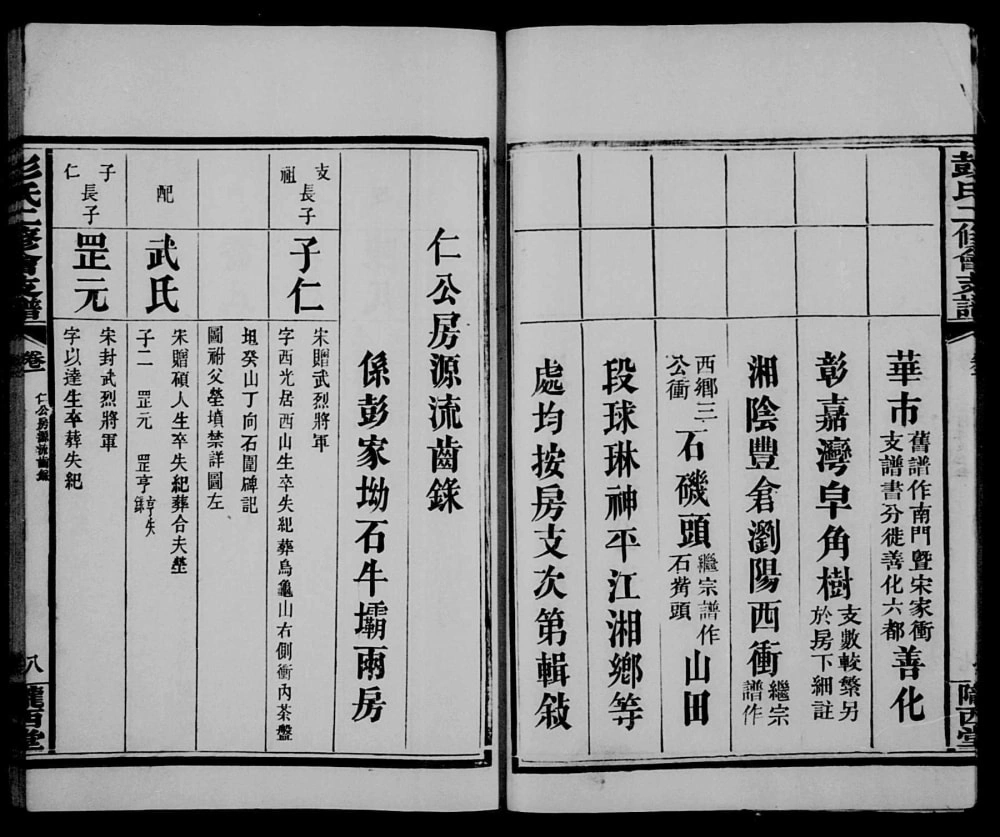 彭氏二修會支譜
隴西堂
華市 舊譜作南門暨宋家衝支譜書分徙善化六都 善化
彰嘉灣皁角樹 支數較繁另於房下細註
湘陰豐倉瀏陽西衝 繼宗譜作
西鄉三公衝 石磯頭 繼宗譜作石觜頭 山田
段球琳神平江湘鄉等
處均按房支次第輯敍
仁公房源流齒錄
係彭家坳石牛壩兩房
支祖長子
子仁
宋贈武烈將軍
字西光居西山生卒失紀葬烏龜山右側衝內茶盤
坵癸山丁向石圍碑記
圖祔父塋墳禁詳圖左
配
武氏
宋贈碩人生卒失紀葬合夫塋
子二 罡元 罡亨 亨失錄
子仁長子
罡元
宋封武烈將軍
字以達生卒葬失紀
彭氏二修會支譜
卷
仁公房源流齒錄
八
隴西堂